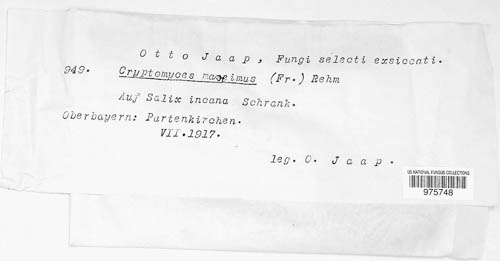 Otto Jaap, Fungi selecti exsiccati.
949. Cryptomyces maximus (Fr.) Rehm
Auf Salix incana Schrank.
Oberbayern: Partenkirchen.
VII.1917.
leg. O. Jaap.
US NATIONAL FUNGUS COLLECTIONS
975748